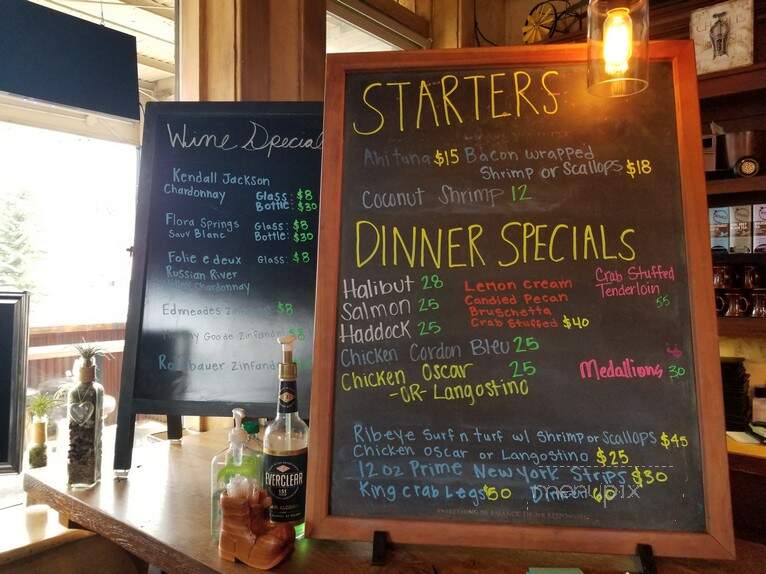 Wine Special
Kendall Jackson
Chardonnay Glass: $8
Bottle: $30
Flora Springs Glass: $8
Sauv Blanc Bottle: $30
Folie e deux Glass: $8
Russian River
Chardonnay
Edmeades $8
Goode Zinfandel $8
Rombauer Zinfandel
EVERCLEAR
STARTERS
Ahi tuna $15 Bacon wrapped
Shrimp or Scallops $18
Coconut Shrimp 12
DINNER SPECIALS
Halibut 28
Salmon 25
Haddock 25
Lemon Cream
Candied Pecan
Bruschetta
Crab Stuffed $40
Crab Stuffed
Tenderloin
55
Chicken Cordon Bleu 25
Chicken Oscar 25
-OR- Langostino
Medallions 30
Ribeye Surf n turf w/ Shrimp or Scallops $45
Chicken Oscar or Langostino $25
12 oz Prime New York Strips $30
King Crab Legs $50 Dinner 60
menupix